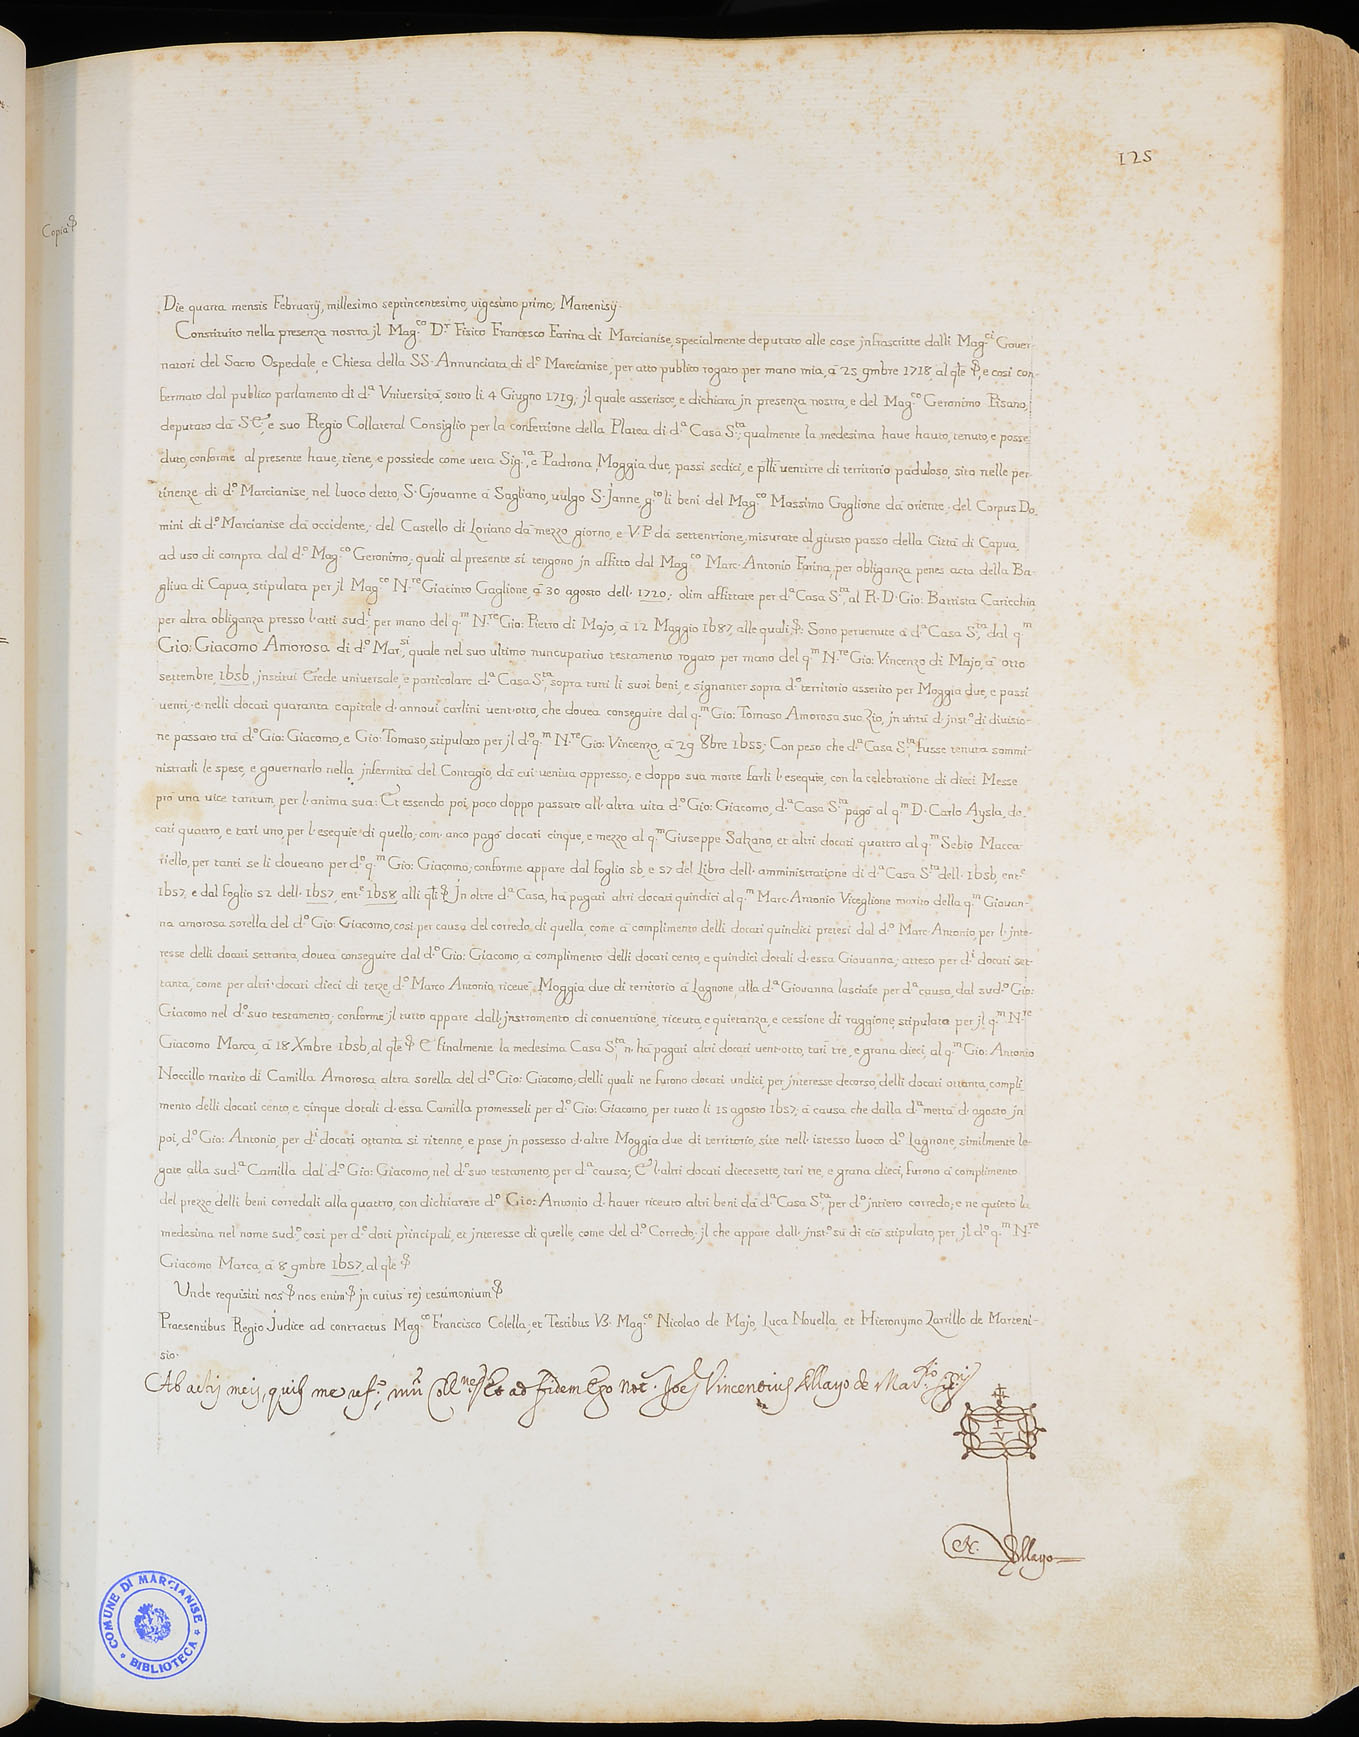 125
Copia
Die quarta mensis Februarij, millesimo septincentesimo, uigesimo primo; Martenisij.
Constituito nella presenza nostra jl Mag.co D.r Fisico Francesco Farina di Marcianise, specialmente deputato alle cose jnfrascritte dalli Mag.ci Gouer-
natori del Sacro Ospedale, e Chiesa della SS. Annunciata di d.o Marcianise, per atto publico rogato per mano mia, à 25 9mbre 1718, al qle &, e così con-
fermato dal publico parlamento di d.a Vniuersità, sotto li 4 Giugno 1719; jl quale asserisce, e dichiara jn presenza nostra, e del Mag.co Geronimo Pisano,
deputato dà S.E., e suo Regio Collateral Consiglio per la confettione della Platea di d.a Casa S.ta; qualmente la medesima haue hauto, tenuto, e posse-
duto, conforme al presente haue, tiene, e possiede come uera Sig.ra, e Padrona, Moggia due, passi sedici, e ptti uentitre di territorio paduloso, sito nelle per-
tinenze di d.o Marcianise, nel luoco detto, S. Gjouanne à Sagliano, uulgo S. Janne, g.to li beni del Mag.co Massimo Gaglione dà oriente; del Corpus Do-
mini di d.o Marcianise dà occidente; del Castello di Loriano dà mezzo giorno, e V.P. dà settentrione, misurate al giusto passo della Città di Capua,
ad uso di compra dal d.o Mag.co Geronimo; quali al presente si tengono jn affitto dal Mag.co Marc. Antonio Farina, per obliganza penes acta della Ba-
gliua di Capua, stipulata per jl Mag.co N.re Giacinto Gaglione, à 30 agosto dell. 1720; olim affittate per d.a Casa S.ta, al R. D. Gio: Battista Caricchia
per altra obliganza presso l'atti sud.i, per mano del q.m N.re Gio: Pietro di Majo, à 12 Maggio 1687, alle quali &: Sono peruenute à d.a Casa S.ta, dal q.m
Gio: Giacomo Amorosa di d.o Mar.si, quale nel suo ultimo nuncupatiuo testamento rogato per mano del q.m N.re Gio: Vincenzo di Majo, à otto
settembre, 1656, jnstituì Erede uniuersale, e particolare d.a Casa S.ta, sopra tutti li suoi beni, e signanter sopra d.o territorio asserito per Moggia due, e passi
uenti; e nelli docati quaranta capitale d. annoui carlini uent.otto, che douea conseguire dal q.m Gio: Tomaso Amorosa suo Zio, jn uirtù d. jnst.o di diuisio-
ne passato trà d.o Gio: Giacomo, e Gio: Tomaso, stipulato per jl d.o q.m N.re Gio: Vincenzo, à 29 8bre 1655; Con peso che d.a Casa S.ta fusse tenuta sommi-
nistrarli le spese, e gouernarlo nella jnfermità del Contagio, dà cui ueniua oppresso; e doppo sua morte farli l.esequie, con la celebratione di dieci Messe
prò una uice tantum, per l.anima sua: Et essendo poi, poco doppo passato all.altra uita d.o Gio: Giacomo, d.a Casa S.ta pagò al q.m D. Carlo Aysla, do-
cati quattro, e tarì uno, per l.esequie di quello; com.anco pagò docati cinque, e mezzo al q.m Giuseppe Salzano, et altri docati quattro al q.m Sebio Macca-
riello, per tanti se li doueano per d.o q.m Gio: Giacomo; conforme appare dal foglio 56, e 57 del Libro dell.amministratione di d.a Casa S.ta dell. 1656, ent.e
1657, e dal foglio 52 dell. 1657, ent.e 1658, alli qli & Jn oltre d.a Casa, hà pagati altri docati quindici al q.m Marc.Antonio Viceglione marito della q.m Giouan-
na amorosa sorella del d.o Gio: Giacomo, così per causa del corredo di quella, come à complimento delli docati quindici pretesi dal d.o Marc.Antonio, per l.jnte-
resse delli docati settanta, douea conseguire dal d.o Gio: Giacomo, à complimento delli docati cento, e quindici dotali d.essa Giouanna; atteso per d.i docati set-
tanta, come per altri docati dieci di terze, d.o Marco Antonio riceuè, Moggia due di territorio à Lagnone, alla d.a Giouanna lasciate per d.a causa, dal sud.o Gio:
Giacomo nel d.o suo testamento; conforme jl tutto appare dall.jnstromento di conuentione, riceuta, e quietanza, e cessione di raggione, stipulato per jl q.m N.re
Giacomo Marca, à 18 Xmbre 1656, al qle & E finalmente la medesima Casa S.ta n.hà pagati altri docati uent.otto, tarì tre, e grana dieci, al q.m Gio: Antonio
Noccillo marito di Camilla Amorosa altra sorella del d.o Gio: Giacomo; delli quali ne furono docati undici, per jnteresse decorso, delli docati ottanta, compli-
mento delli docati cento, e cinque dotali d.essa Camilla promesseli per d.o Gio: Giacomo, per tutto li 15 agosto 1657; à causa che dalla d.a mettà d.agosto jn
poi, d.o Gio: Antonio, per d.i docati ottanta si ritenne, e pose jn possesso d.altre Moggia due di territorio, site nell.istesso luoco d.o Lagnone, similmente le-
gate alla sud.a Camilla dal d.o Gio: Giacomo, nel d.o suo testamento, per d.a causa; E l.altri docati diecesette, tarì tre, e grana dieci, furono à complimento
del prezzo delli beni corredali alla quattro, con dichiarare d.o Gio: Antonio d.hauer riceuto altri beni dà d.a Casa S.ta, per d.o jntiero corredo; e ne quietò la
medesima nel nome sud.o, così per d.e doti principali, et jnteresse di quelle, come del d.o Corredo; jl che appare dall.jnst.o sù di ciò stipulato, per jl d.o q.m N.re
Giacomo Marca, à 8 9mbre 1657, al qle &
Unde requisiti nos & nos enim & jn cuius rej testimonium &
Praesentibus Regio Judice ad contractus Mag.co Francisco Colella; et Testibus V3. Mag.co Nicolao de Majo, Luca Nouella, et Hieronymo Zarrillo de Marteni-
sio.
Ab actij meij, quib me Et ad fidem Ego Not. Joes Vincentius Mayo de
N. Mayo
COMUNE DI MARCIANISE
BIBLIOTECA